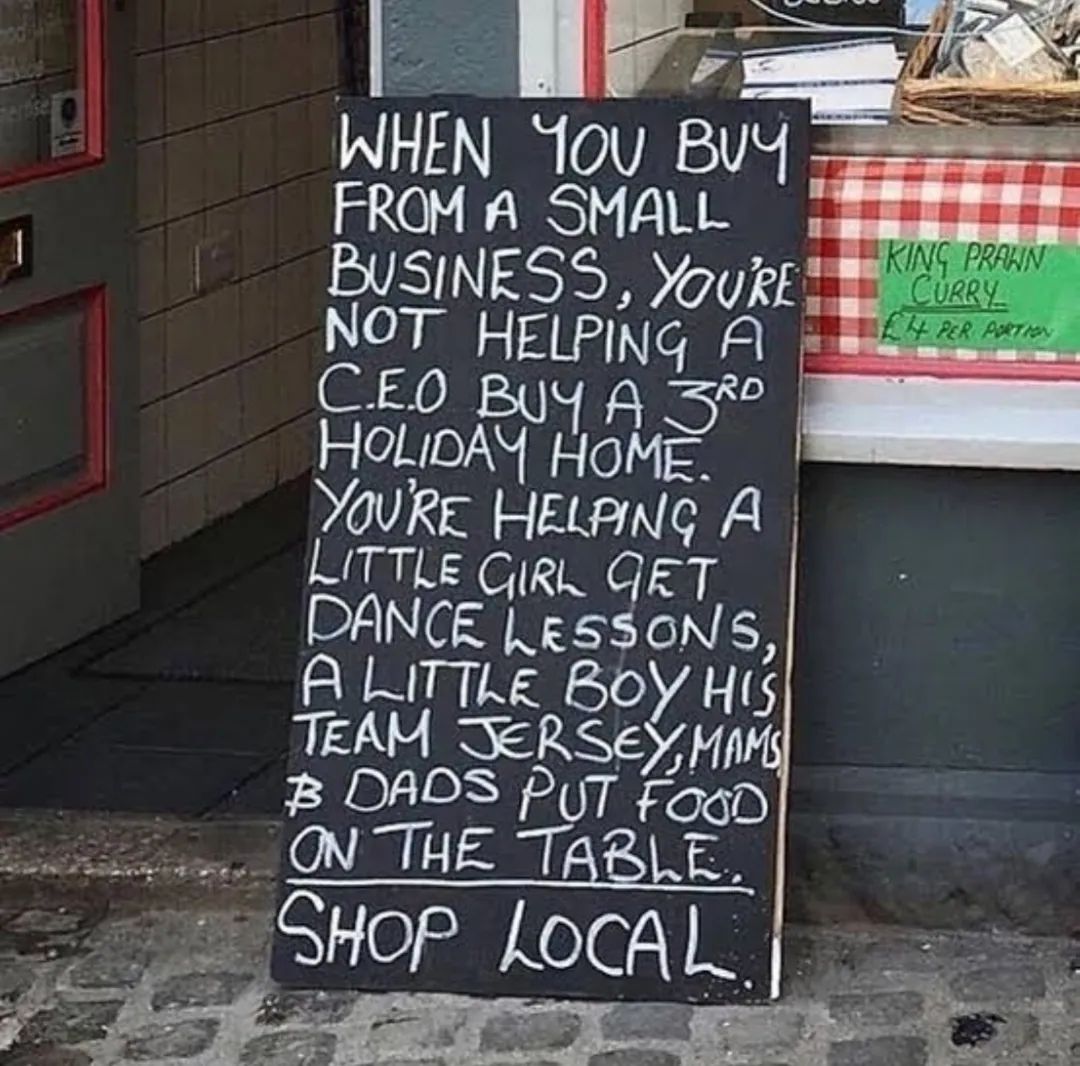 WHEN YOU BUY
FROM A SMALL
BUSINESS, YOU'RE
NOT HELPING A
C.E.O BUY A 3RD
HOLIDAY HOME.
YOU'RE HELPING A
LITTLE GIRL GET
DANCE LESSONS,
A LITTLE BOY HIS
TEAM JERSEY, MAMS
& DADS PUT FOOD
ON THE TABLE.
SHOP LOCAL.
KING PRAWN
CURRY
£4 PER PORTION